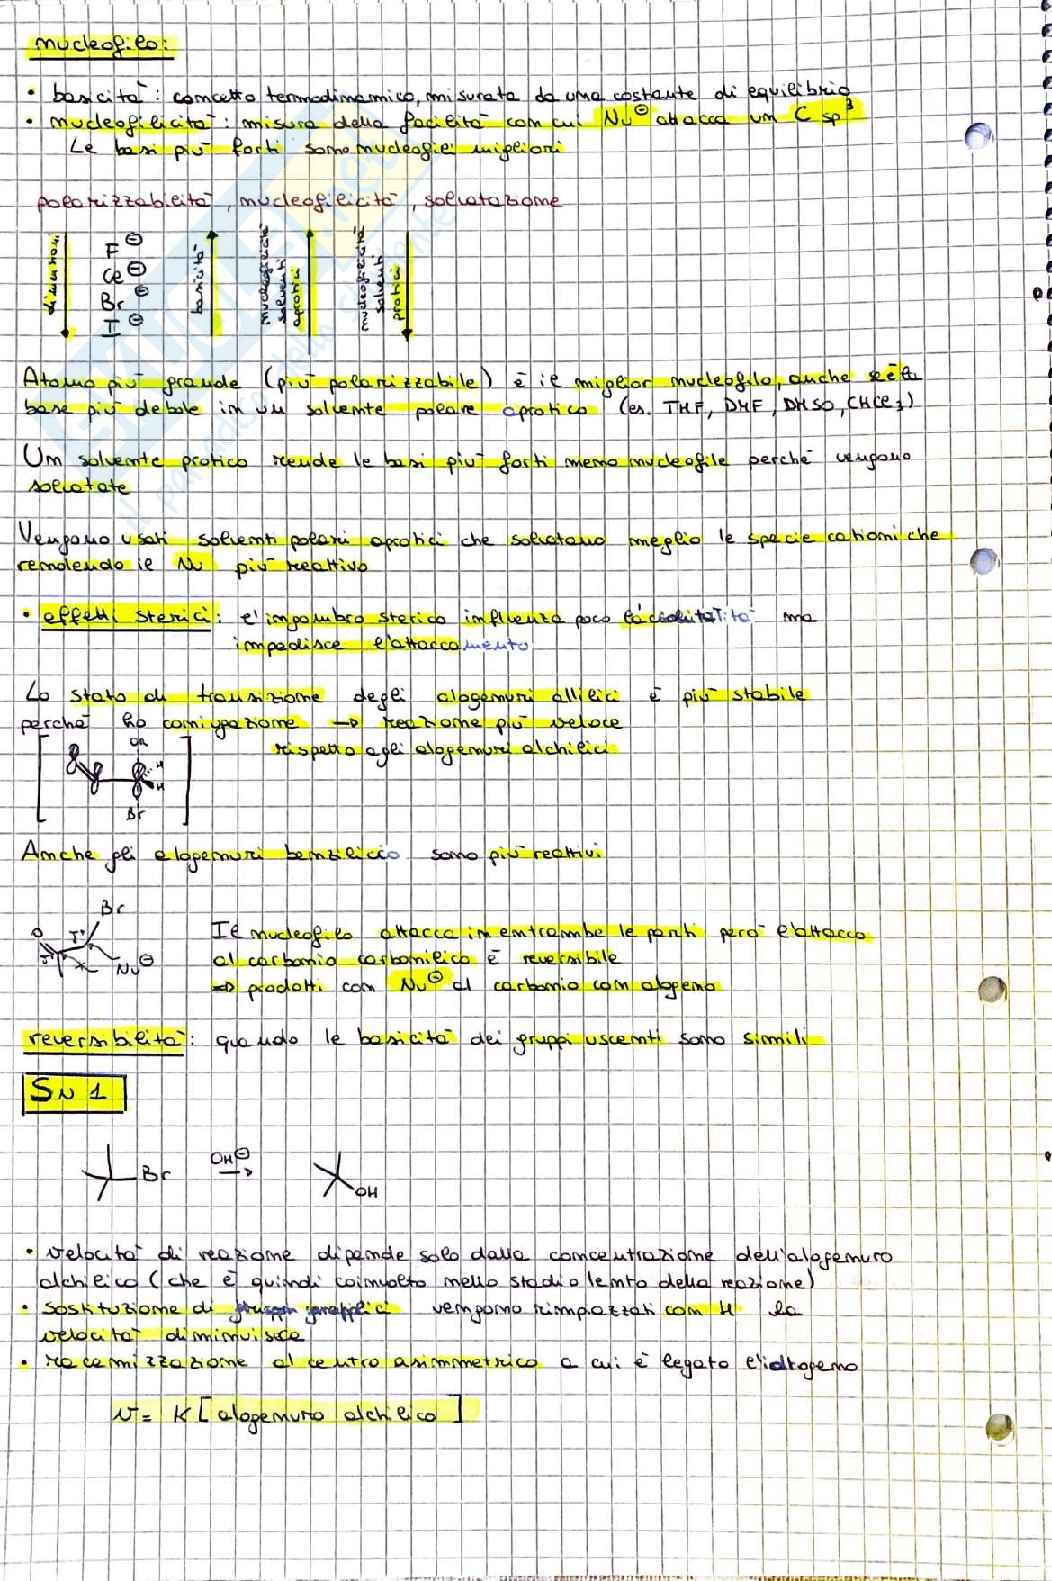 nucleofilo:
• basicità: concetto termodinamico, misurata da una costante di equilibrio
• nucleofilicità: misura della facilità con cui Nu⊖ attacca un C sp³
Le basi più forti sono nucleofili migliori
polarizzabilità, nucleofilicità, solvatazione
dimensioni
F⊖
Cl⊖
Br⊖
I⊖
basicità
nucleofilicità solventi aprotici
nucleofilicità solventi protici
Atomo più grande (più polarizzabile) è il miglior nucleofilo, anche se è la
base più debole in un solvente polare aprotico (es. THF, DMF, DMSO, CHCl3)
Un solvente protico rende le basi più forti meno nucleofile perché vengono
solvatate
Vengono usati solventi polari aprotici che solvatano meglio le specie cationiche
rendendo il Nu più reattivo
• effetti sterici: l'ingombro sterico influenza poco ma
impedisce l'attaccamento
Lo stato di transizione degli alogenuri allilici è più stabile
perché ho coniugazione → reazione più veloce
rispetto agli alogenuri alchilici
OR
H
H
Br
Anche gli alogenuri benzilici sono più reattivi
Br
O
Nu⊖
Il nucleofilo attacca in entrambe le parti però l'attacco
al carbonio carbonilico è reversibile
⇒ prodotti con Nu⊖ al carbonio con alogeno
reversibilità: quando le basicità dei gruppi uscenti sono simili
SN1
Br
OH⊖
OH
• velocità di reazione dipende solo dalla concentrazione dell'alogenuro
alchilico (che è quindi coinvolto nello stadio lento della reazione)
• sostituzione di vengono rimpiazzati con H la
velocità diminuisce
• racemizzazione al centro asimmetrico a cui è legato l'alogeno
v = K [alogenuro alchilico]